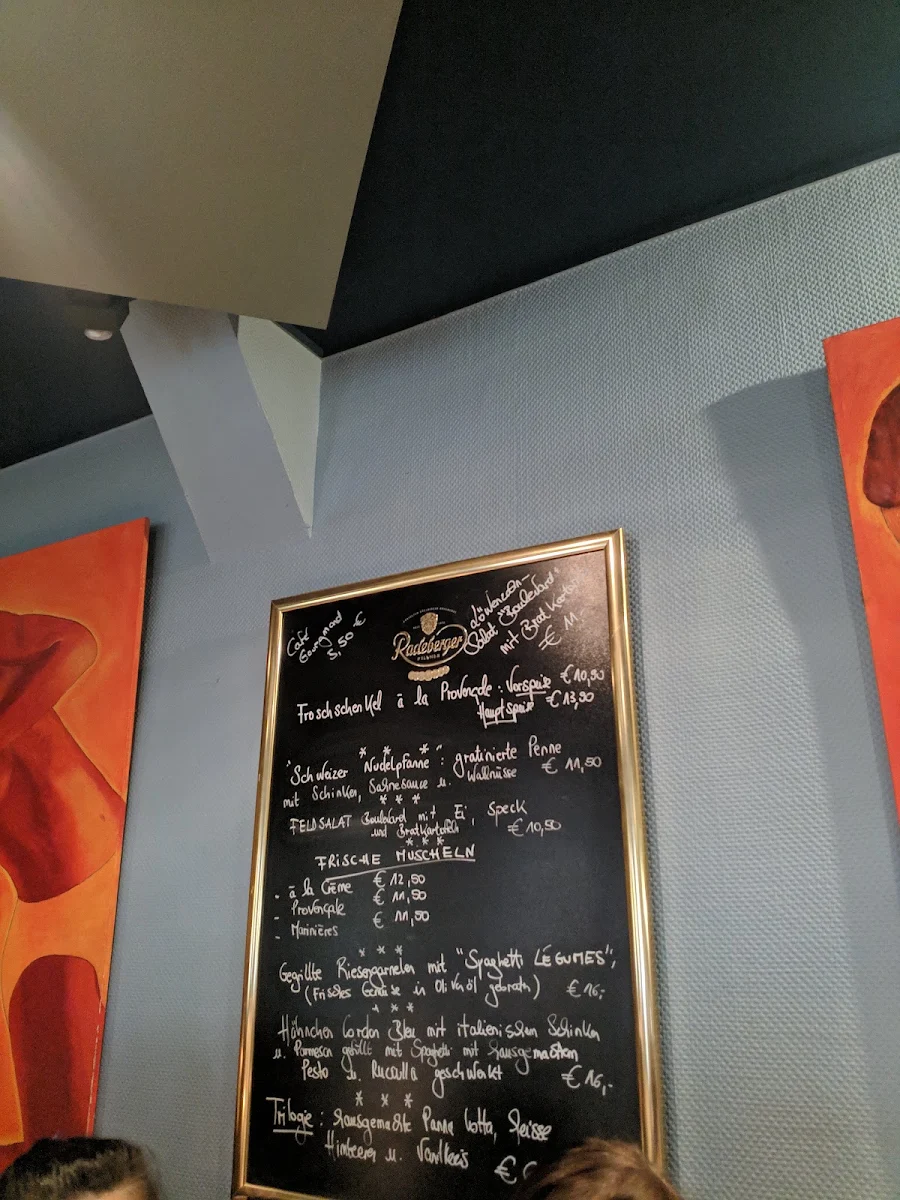 Café
Gourmand
5,50 €
Radeberger
PILSNER
Löwenzahn-
Salat "Boulevard"
mit Bratkartof
€ 11.
Froschschenkel à la Provençale : Vorspeise € 10,50
Hauptspeise € 13,90
* * *
"Schweizer Nudelpfanne" : gratinierte Penne
mit Schinken, Sahnesauce u. Wallnüsse € 11,50
* * *
FELDSALAT Boulevard mit Ei, Speck
und Bratkartoffeln € 10,50
* * *
FRISCHE MUSCHELN
- à la Crème € 12,50
- Provençale € 11,50
- Marinières € 11,50
* * *
Gegrillte Riesengarnelen mit "Spaghetti LÉGUMES",
(Frisches Gemüse in Olivenöl gebraten) € 16,-
* * *
Hähnchen Cordon Bleu mit italienischem Schinken
u. Parmesan gefüllt mit Spaghetti mit hausgemachtem
Pesto u. Rucola geschwenkt € 16,-
* * *
Trilogie : Hausgemachte Panna Cotta, Heisse
Himbeeren u. Vanilleeis €